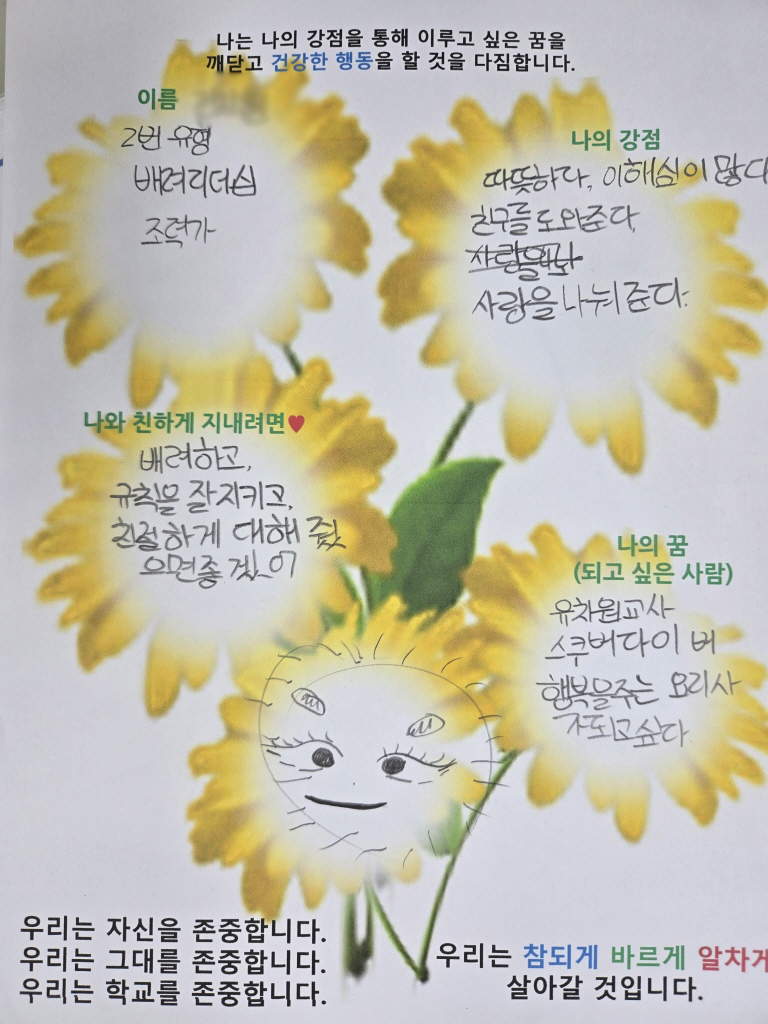 나는 나의 강점을 통해 이루고 싶은 꿈을
깨닫고 건강한 행동을 할 것을 다짐합니다.
이름
2번 유형
배려리더십
조력가
나의 강점
따뜻하다, 이해심이 많다
친구를 도와준다,
사랑을 나눠준다.
나와 친하게 지내려면♥
배려하고,
규칙을 잘 지키고,
친절하게 대해 줬
으면 좋겠어
나의 꿈
(되고 싶은 사람)
유치원교사
스쿠버다이버
행복을 주는 요리사
가 되고 싶다
우리는 자신을 존중합니다.
우리는 그대를 존중합니다.
우리는 학교를 존중합니다.
우리는 참되게 바르게 알차게
살아갈 것입니다.